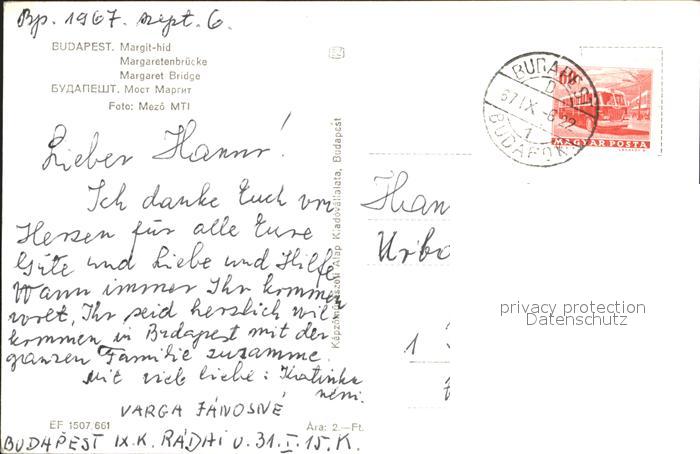 Bp. 1967. szept. 6.
BUDAPEST. Margit-hid
Margaretenbrücke
Margaret Bridge
БУДАПЕШТ. Мост Маргит
Foto: Mező MTI
Lieber Hanns!
Ich danke Euch von
Herzen für alle Eure
Güte und Liebe und Hilfe
Wann immer Ihr kommen
wolt, Ihr seid herzlich wil
kommen in Budapest mit der
ganzen Familie zusamme.
Mit viel liebe: Katinka
néni.
VARGA JÁNOSNÉ
EF 1507.661
Ára: 2.—Ft.
BUDAPEST IX.K. RÁDAI U. 31. I. 15. K.
Képzőművészeti Alap Kiadóvállalata, Budapest
BUDAPEST
D
67 IX -6 22
1
BUDAFOK
MAGYAR POSTA
Han
Urbo
1
privacy protection
Datenschutz